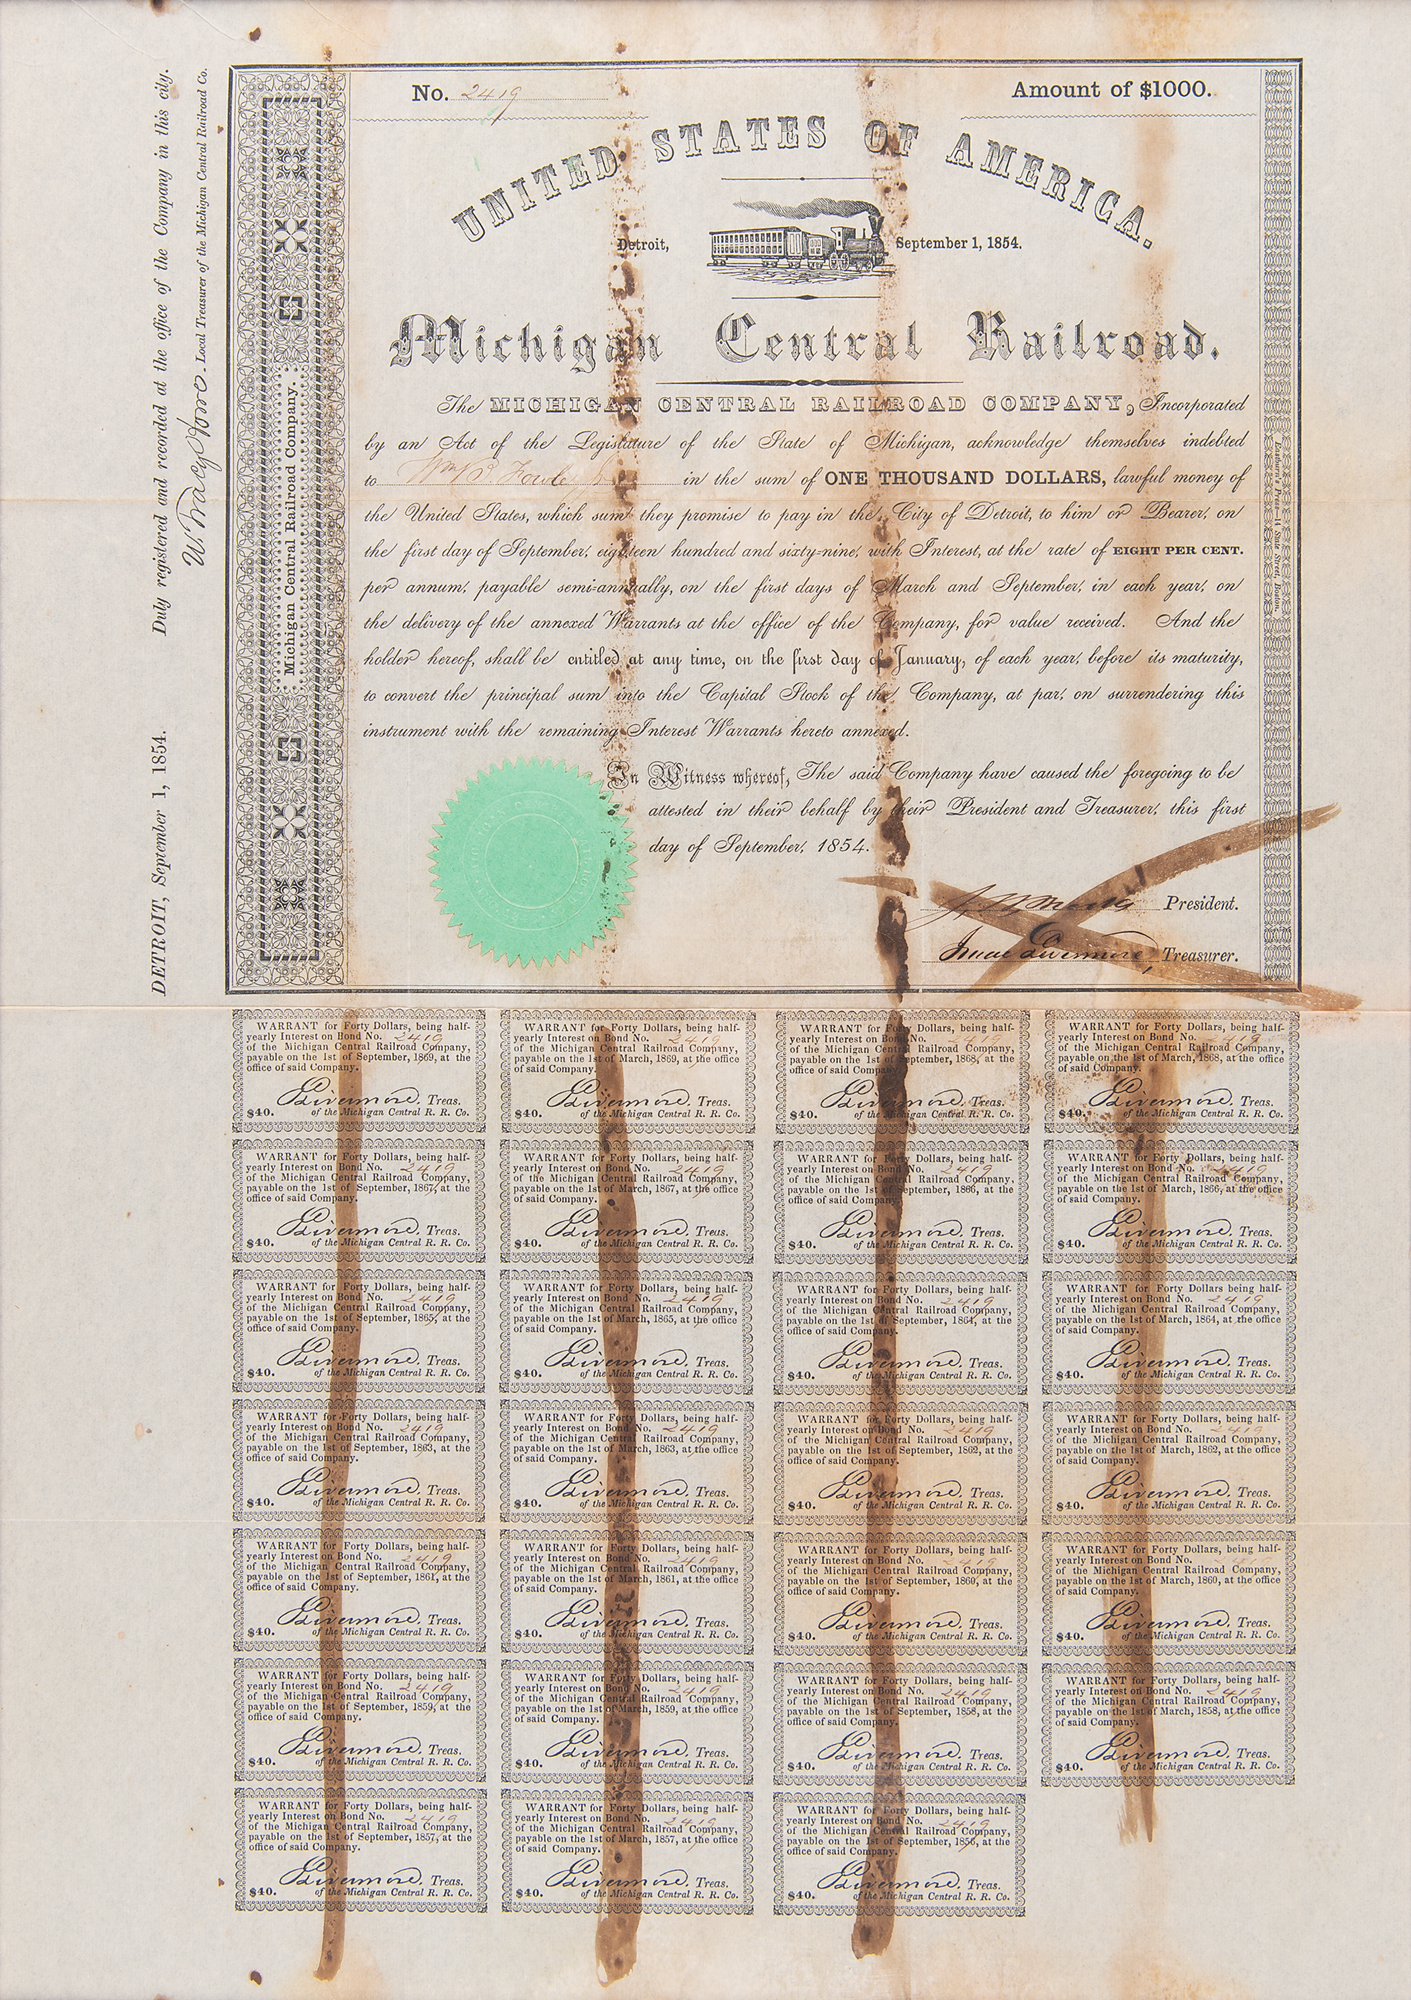 No. 2419
Amount of $1000.
UNITED STATES OF AMERICA.
Detroit, September 1, 1854.
Michigan Central Railroad.
The MICHIGAN CENTRAL RAILROAD COMPANY, Incorporated
by an Act of the Legislature of the State of Michigan, acknowledge themselves indebted
to Wm B. Fowle Jr in the sum of ONE THOUSAND DOLLARS, lawful money of
the United States, which sum they promise to pay in the City of Detroit, to him or Bearer, on
the first day of September, eighteen hundred and sixty-nine, with Interest, at the rate of EIGHT PER CENT.
per annum, payable semi-annually, on the first days of March and September, in each year, on
the delivery of the annexed Warrants at the office of the Company, for value received. And the
holder hereof, shall be entitled at any time, on the first day of January, of each year, before its maturity,
to convert the principal sum into the Capital Stock of the Company, at par, on surrendering this
instrument with the remaining Interest Warrants hereto annexed.
In Witness whereof, The said Company have caused the foregoing to be
attested in their behalf by their President and Treasurer, this first
day of September, 1854.
President.
Isaac Livermore, Treasurer.
Michigan Central Railroad Company.
DETROIT, September 1, 1854. Duly registered and recorded at the office of the Company in this city.
W. Tracy Howe. Local Treasurer of the Michigan Central Railroad Co.
Eastburn's Press—14 State Street, Boston.
WARRANT for Forty Dollars, being half-
yearly Interest on Bond No. 2419
of the Michigan Central Railroad Company,
payable on the 1st of September, 1869, at the
office of said Company.
Livermore. Treas.
$40. of the Michigan Central R. R. Co.
WARRANT for Forty Dollars, being half-
yearly Interest on Bond No. 2419
of the Michigan Central Railroad Company,
payable on the 1st of March, 1869, at the office
of said Company.
Livermore. Treas.
$40. of the Michigan Central R. R. Co.
WARRANT for Forty Dollars, being half-
yearly Interest on Bond No. 2419
of the Michigan Central Railroad Company,
payable on the 1st of September, 1868, at the
office of said Company.
Livermore. Treas.
$40. of the Michigan Central R. R. Co.
WARRANT for Forty Dollars, being half-
yearly Interest on Bond No. 2419
of the Michigan Central Railroad Company,
payable on the 1st of March, 1868, at the office
of said Company.
Livermore. Treas.
$40. of the Michigan Central R. R. Co.
WARRANT for Forty Dollars, being half-
yearly Interest on Bond No. 2419
of the Michigan Central Railroad Company,
payable on the 1st of September, 1867, at the
office of said Company.
Livermore. Treas.
$40. of the Michigan Central R. R. Co.
WARRANT for Forty Dollars, being half-
yearly Interest on Bond No. 2419
of the Michigan Central Railroad Company,
payable on the 1st of March, 1867, at the office
of said Company.
Livermore. Treas.
$40. of the Michigan Central R. R. Co.
WARRANT for Forty Dollars, being half-
yearly Interest on Bond No. 2419
of the Michigan Central Railroad Company,
payable on the 1st of September, 1866, at the
office of said Company.
Livermore. Treas.
$40. of the Michigan Central R. R. Co.
WARRANT for Forty Dollars, being half-
yearly Interest on Bond No. 2419
of the Michigan Central Railroad Company,
payable on the 1st of March, 1866, at the office
of said Company.
Livermore. Treas.
$40. of the Michigan Central R. R. Co.
WARRANT for Forty Dollars, being half-
yearly Interest on Bond No. 2419
of the Michigan Central Railroad Company,
payable on the 1st of September, 1865, at the
office of said Company.
Livermore. Treas.
$40. of the Michigan Central R. R. Co.
WARRANT for Forty Dollars, being half-
yearly Interest on Bond No. 2419
of the Michigan Central Railroad Company,
payable on the 1st of March, 1865, at the office
of said Company.
Livermore. Treas.
$40. of the Michigan Central R. R. Co.
WARRANT for Forty Dollars, being half-
yearly Interest on Bond No. 2419
of the Michigan Central Railroad Company,
payable on the 1st of September, 1864, at the
office of said Company.
Livermore. Treas.
$40. of the Michigan Central R. R. Co.
WARRANT for Forty Dollars, being half-
yearly Interest on Bond No. 2419
of the Michigan Central Railroad Company,
payable on the 1st of March, 1864, at the office
of said Company.
Livermore. Treas.
$40. of the Michigan Central R. R. Co.
WARRANT for Forty Dollars, being half-
yearly Interest on Bond No. 2419
of the Michigan Central Railroad Company,
payable on the 1st of September, 1863, at the
office of said Company.
Livermore. Treas.
$40. of the Michigan Central R. R. Co.
WARRANT for Forty Dollars, being half-
yearly Interest on Bond No. 2419
of the Michigan Central Railroad Company,
payable on the 1st of March, 1863, at the office
of said Company.
Livermore. Treas.
$40. of the Michigan Central R. R. Co.
WARRANT for Forty Dollars, being half-
yearly Interest on Bond No. 2419
of the Michigan Central Railroad Company,
payable on the 1st of September, 1862, at the
office of said Company.
Livermore. Treas.
$40. of the Michigan Central R. R. Co.
WARRANT for Forty Dollars, being half-
yearly Interest on Bond No. 2419
of the Michigan Central Railroad Company,
payable on the 1st of March, 1862, at the office
of said Company.
Livermore. Treas.
$40. of the Michigan Central R. R. Co.
WARRANT for Forty Dollars, being half-
yearly Interest on Bond No. 2419
of the Michigan Central Railroad Company,
payable on the 1st of September, 1861, at the
office of said Company.
Livermore. Treas.
$40. of the Michigan Central R. R. Co.
WARRANT for Forty Dollars, being half-
yearly Interest on Bond No. 2419
of the Michigan Central Railroad Company,
payable on the 1st of March, 1861, at the office
of said Company.
Livermore. Treas.
$40. of the Michigan Central R. R. Co.
WARRANT for Forty Dollars, being half-
yearly Interest on Bond No. 2419
of the Michigan Central Railroad Company,
payable on the 1st of September, 1860, at the
office of said Company.
Livermore. Treas.
$40. of the Michigan Central R. R. Co.
WARRANT for Forty Dollars, being half-
yearly Interest on Bond No. 2419
of the Michigan Central Railroad Company,
payable on the 1st of March, 1860, at the office
of said Company.
Livermore. Treas.
$40. of the Michigan Central R. R. Co.
WARRANT for Forty Dollars, being half-
yearly Interest on Bond No. 2419
of the Michigan Central Railroad Company,
payable on the 1st of September, 1859, at the
office of said Company.
Livermore. Treas.
$40. of the Michigan Central R. R. Co.
WARRANT for Forty Dollars, being half-
yearly Interest on Bond No. 2419
of the Michigan Central Railroad Company,
payable on the 1st of March, 1859, at the office
of said Company.
Livermore. Treas.
$40. of the Michigan Central R. R. Co.
WARRANT for Forty Dollars, being half-
yearly Interest on Bond No. 2419
of the Michigan Central Railroad Company,
payable on the 1st of September, 1858, at the
office of said Company.
Livermore. Treas.
$40. of the Michigan Central R. R. Co.
WARRANT for Forty Dollars, being half-
yearly Interest on Bond No. 2419
of the Michigan Central Railroad Company,
payable on the 1st of March, 1858, at the office
of said Company.
Livermore. Treas.
$40. of the Michigan Central R. R. Co.
WARRANT for Forty Dollars, being half-
yearly Interest on Bond No. 2419
of the Michigan Central Railroad Company,
payable on the 1st of September, 1857, at the
office of said Company.
Livermore. Treas.
$40. of the Michigan Central R. R. Co.
WARRANT for Forty Dollars, being half-
yearly Interest on Bond No. 2419
of the Michigan Central Railroad Company,
payable on the 1st of March, 1857, at the office
of said Company.
Livermore. Treas.
$40. of the Michigan Central R. R. Co.
WARRANT for Forty Dollars, being half-
yearly Interest on Bond No. 2419
of the Michigan Central Railroad Company,
payable on the 1st of September, 1856, at the
office of said Company.
Livermore. Treas.
$40. of the Michigan Central R. R. Co.